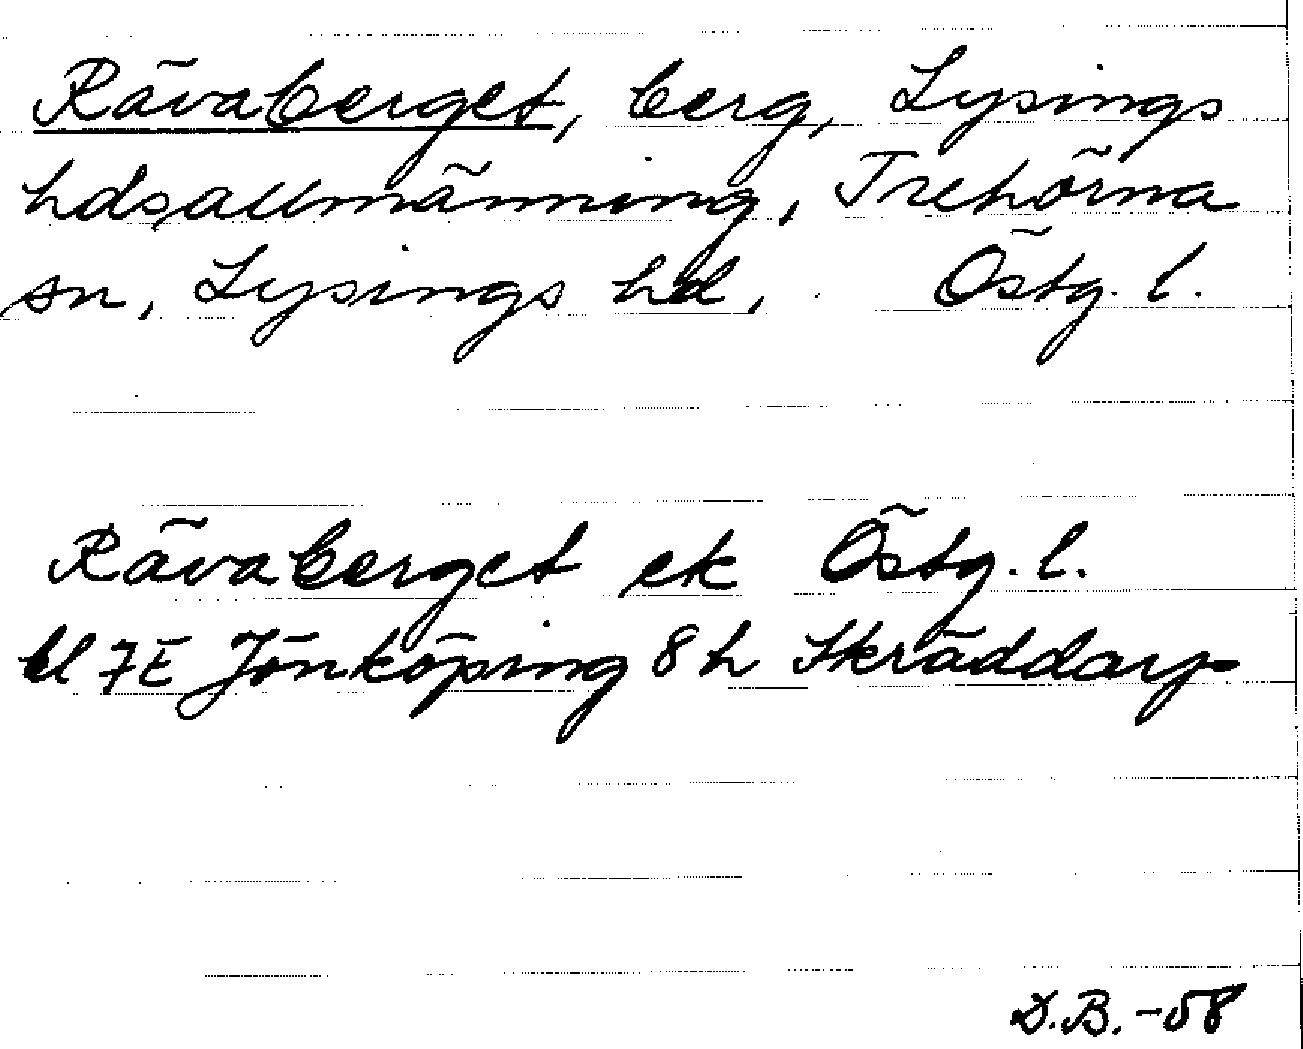 Rävaberget, berg, Lysings
hdsallmänning, Trehörna
sn, Lysings hd, Östg. l.
Rävaberget ek Östg. l.
bl 7E Jönköping 8 h Skräddarp
D.B. -58